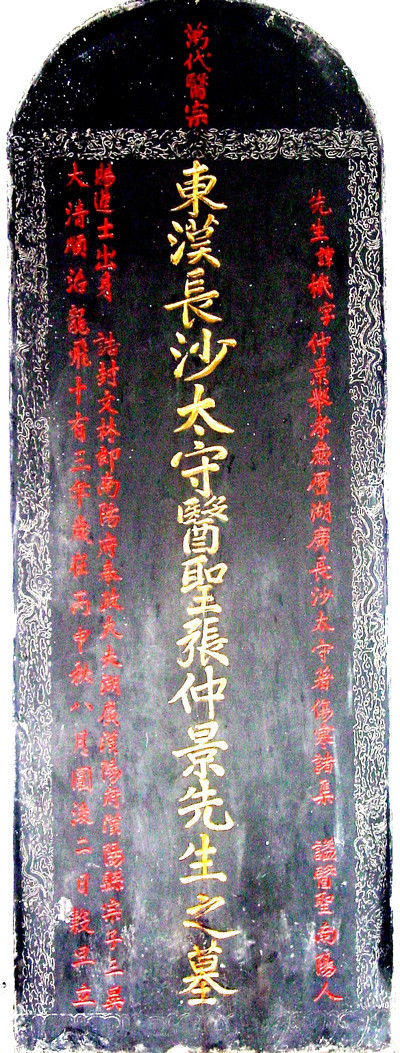 萬代醫宗
先生諱機字仲景舉孝廉歷湖廣長沙太守著傷寒諸集 謚醫聖南陽人
東漢長沙太守醫聖張仲景先生之墓
賜進士出身 誥封文林郎南陽府奉政大夫湖廣漢陽府漢陽縣宗子三異
大清順治龍飛十有三年歲在丙申秋八月圓後二日穀旦立